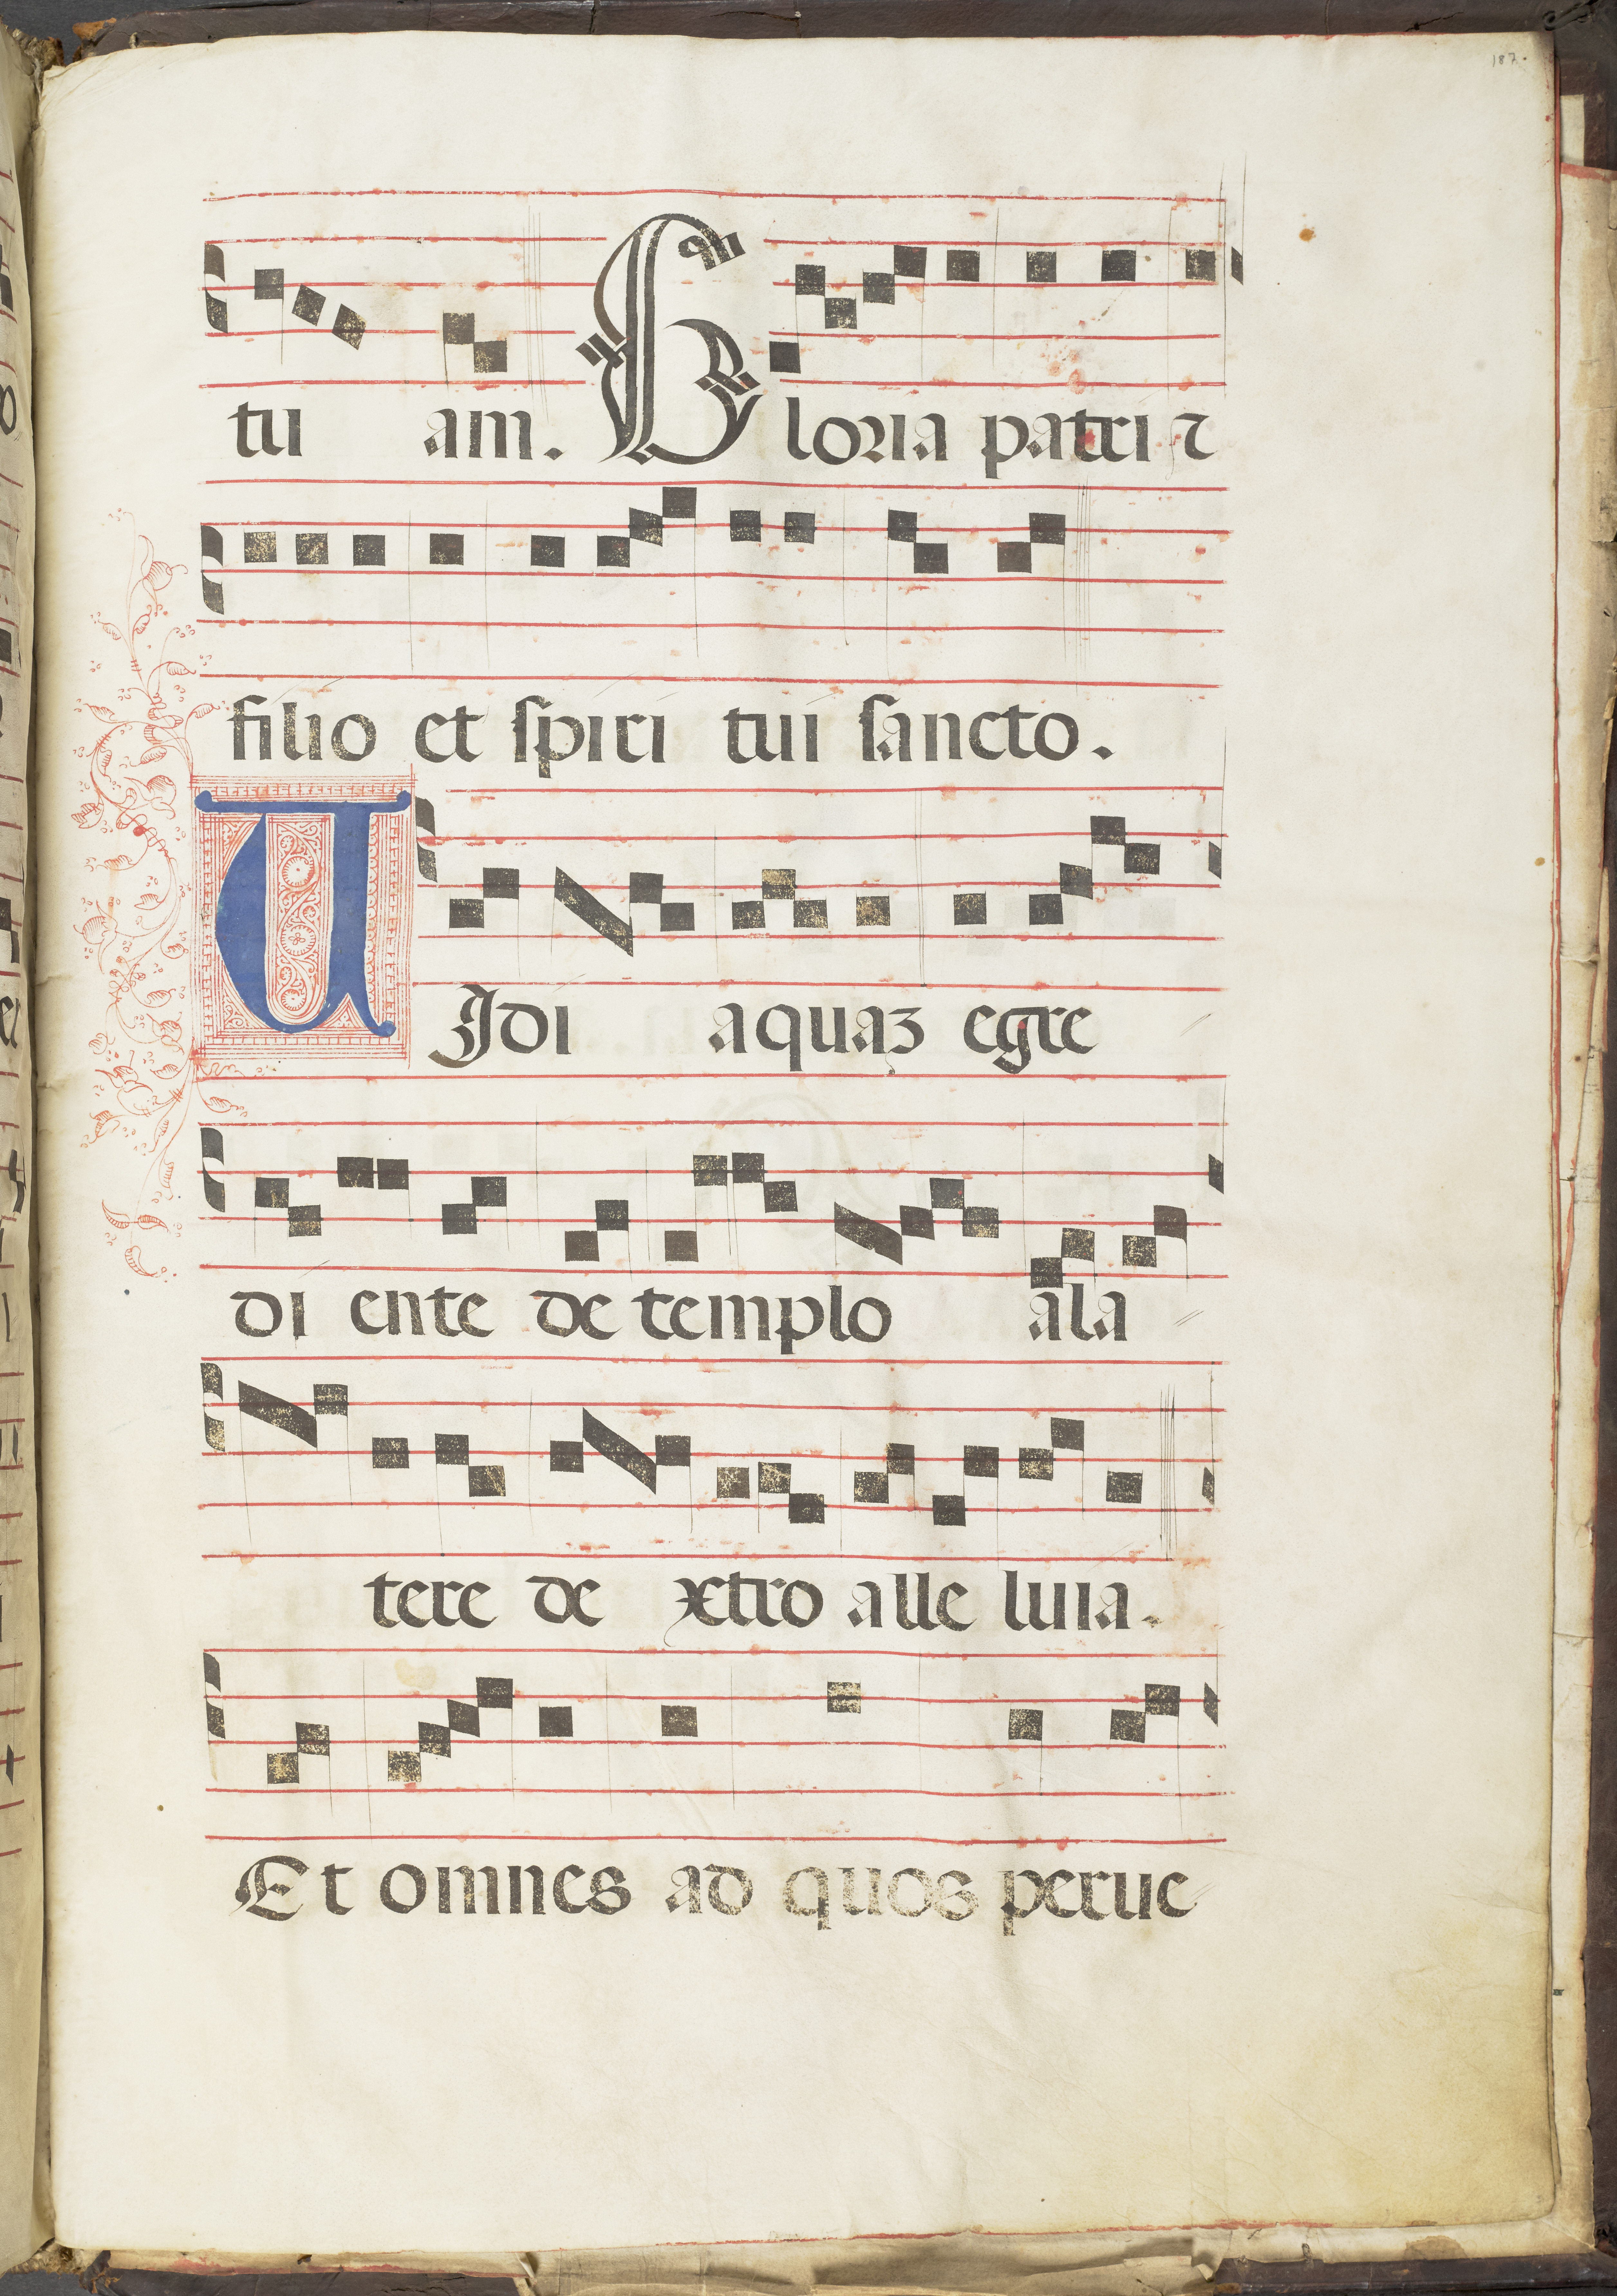 187.
tu am. Gloria patri ⁊
filio et spiri tui sancto.
UIdi aquaꝫ egre
di ente de templo ala
tere de xtro alle luia.
Et omnes ad quos perue